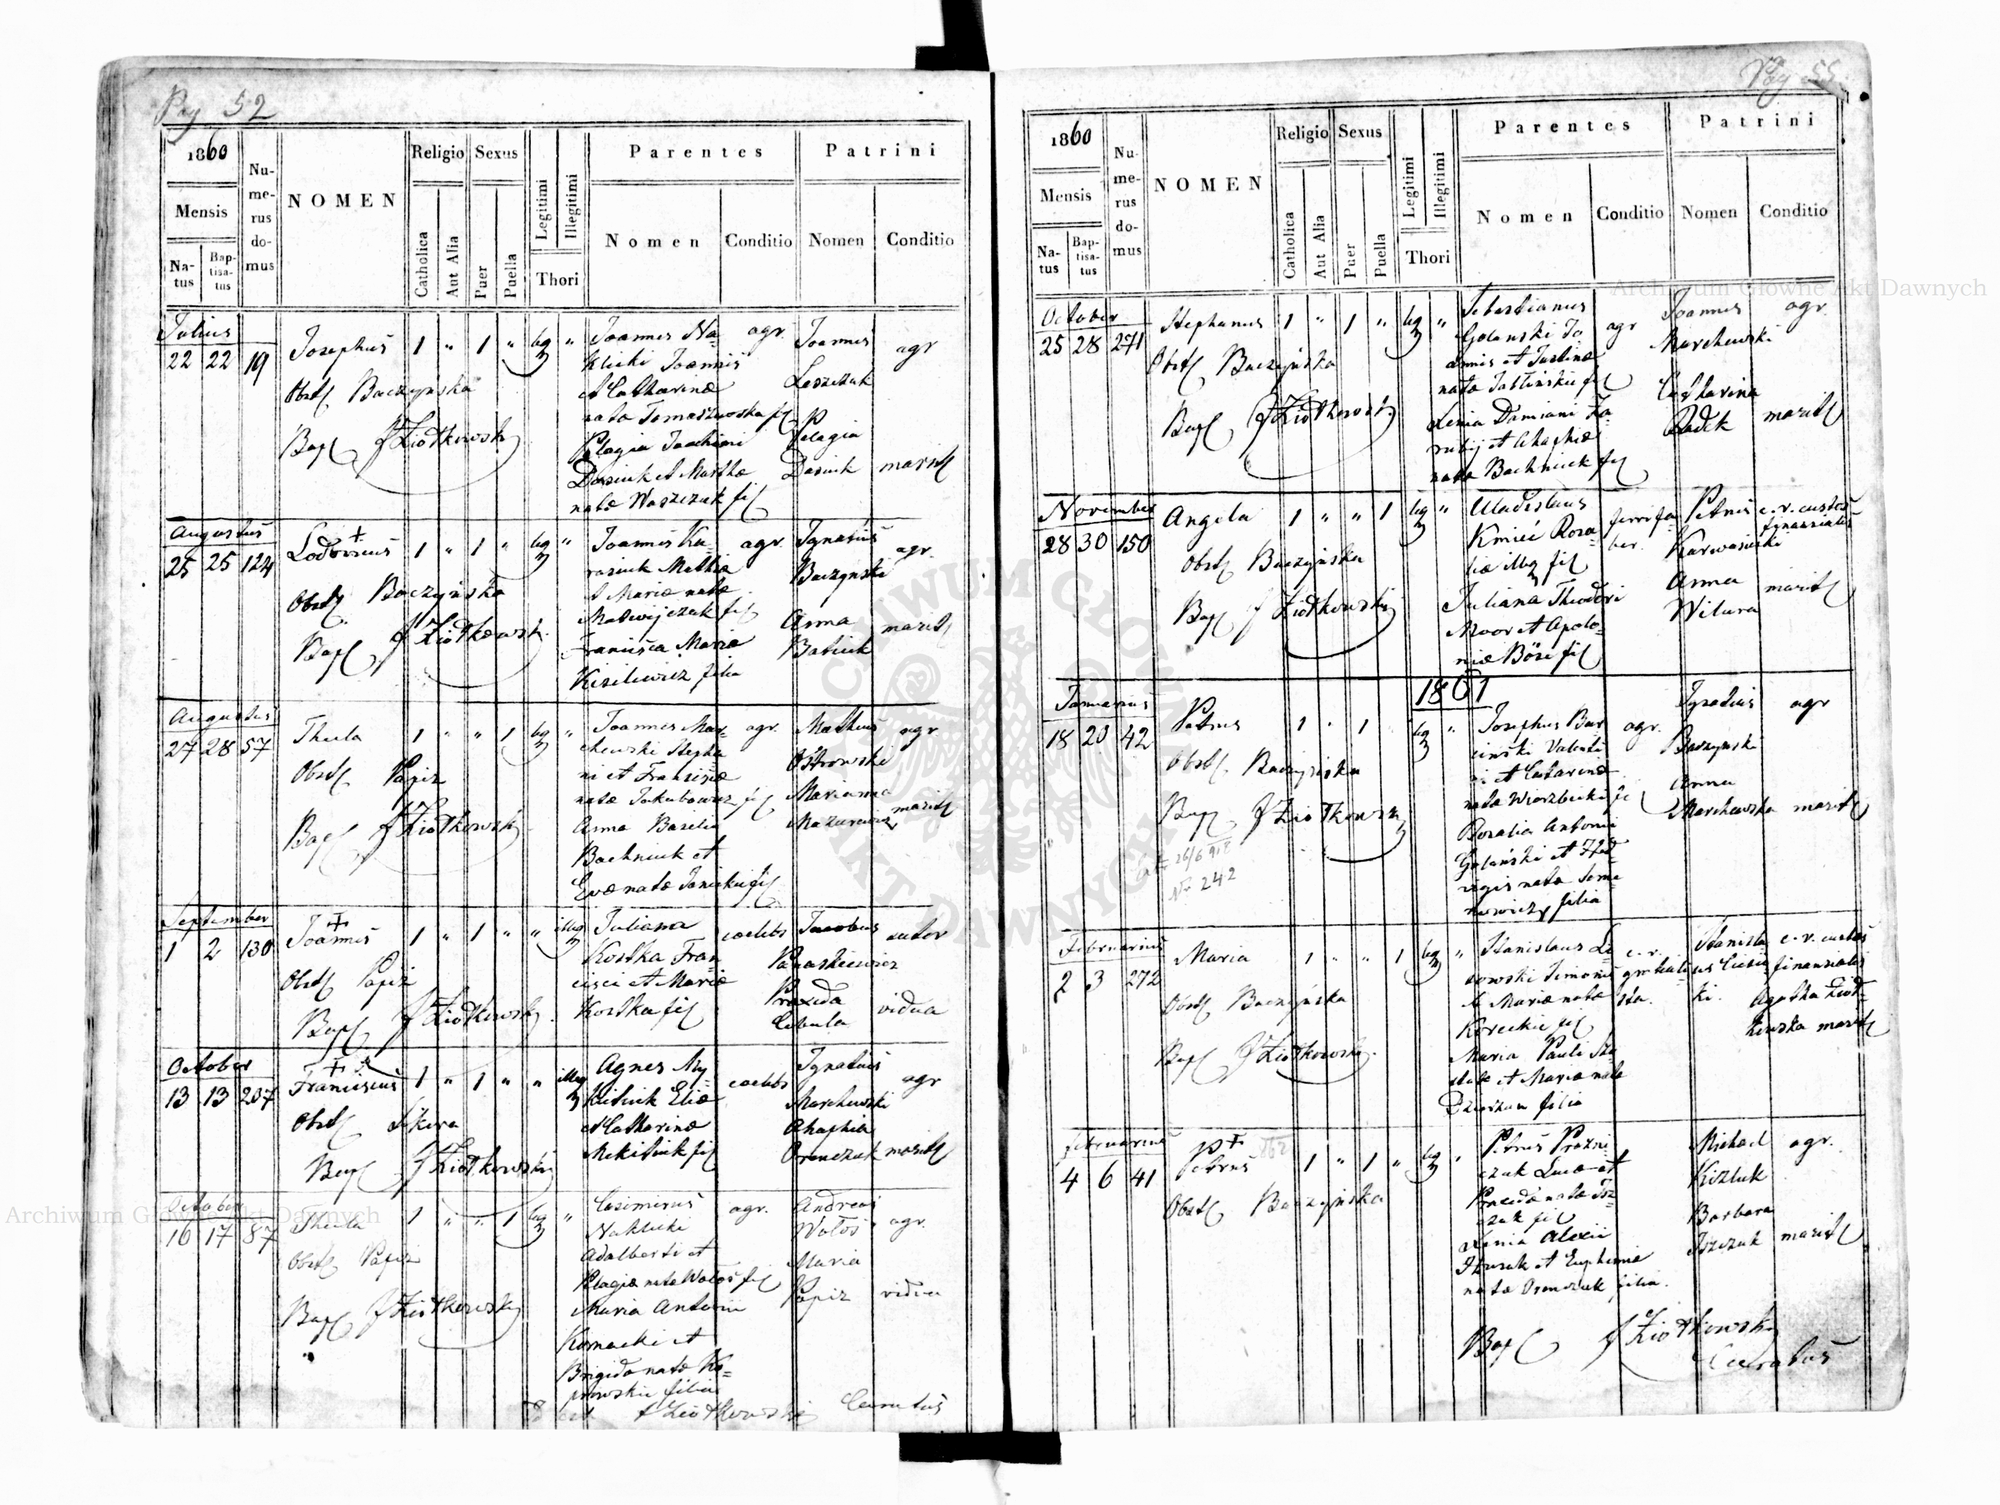 Pag 52
1860
Mensis
Natus
Baptisatus
Numerus domus
NOMEN
Religio
Catholica
Aut Alia
Sexus
Puer
Puella
Legitimi
Illegitimi
Thori
Parentes
Nomen
Conditio
Patrini
Nomen
Conditio
Julius
22 22 19
Josephus
1 " 1 " leg "
Obst Baczyńska
Bap J Ziółkowski
Joannes Na=
klicki Joannis
et Catharinæ
nata Tomaszewska fil
Pelagia Joachimi
Dasiuk et Marthæ
nata Waszczuk fil
agr.
Joannes
Leszczuk
agr
Pelagia
Dasiuk
marit
Augustus
25 25 124
Lodovicus
1 " 1 " leg "
Obst Baczyńska
Bap J Ziółkowski
Joannes Ka=
rasiuk
et Mariæ natæ
Matwijczuk fil
Francisca Mariæ
Kisilewicz filia
agr.
Ignatius
Baczynski
agr.
Anna
Batiuk
marit
Augustus
27 28 57
Thecla
1 " " 1 leg "
Obst Papiz
Bap J Ziółkowski
Joannes Mar=
chewski Stepha
ni et Francisæ
nata Jakubowicz fil
Anna Basilii
Bachniuk et
Evæ nata Janicki fil
agr.
Mathias
Ostrowski
agr
Marianna
Mazurewicz
marit
September
1 2 130
Joannes
1 " 1 " " illeg
Obst Papiz
Bap J Ziółkowski
Juliana
Kostka Fran=
cisci et Mariæ
Kostka fil
coelebs
Jacobus
Paraskiewicz
sutor
Praxeda
Cebula
vidua
October
13 13 207
Franciscus
1 " 1 " " illeg
Obst Sikora
Bap J Ziółkowski
Agnes My=
kitiuk Eliæ
et Catharinæ
Mekitiuk fil
coelebs
Ignatius
Marchewski
agr
Ahaphia
Orenczuk
marit
October
16 17 87
Thecla
1 " " 1 leg "
Obst Papiz
Bap J Ziółkowski
Casimirus
Naklicki
Adalberti et
Pelagiæ nata Wołos fil
Maria Antonii
Kornacki et
Brigida nata Ko=
prowski filia
agr.
Andreas
Wołos
agr.
Maria
Papiz
vidua
J Ziółkowski Curatus
Pag 55
1860
Mensis
Natus
Baptisatus
Numerus domus
NOMEN
Religio
Catholica
Aut Alia
Sexus
Puer
Puella
Legitimi
Illegitimi
Thori
Parentes
Nomen
Conditio
Patrini
Nomen
Conditio
October
25 28 271
Stephanus
1 " 1 " leg "
Obst Baczyńska
Bap J Ziółkowski
Sebestianus
Golanski Jo
annis et Justinæ
nata Jabłińskie fil
Xenia Damiani Za
rubij et Ahaphiæ
nata Bachniuk fil
agr
Joannes
Marchewski
agr.
Catharina
Radek
marit
November
28 30 150
Angela
1 " " 1 leg "
Obst Baczyńska
Bap J Ziółkowski
Uladislaus
Kmieć Rosa=
liæ illeg fil
Juliana Theodori
Moor et Apolo=
niæ Böse fil
ferrifa=
ber.
Petrus
Karwasiecki
c. r. custos
finansialis
Anna
Witura
marit
1861
Januarius
18 20 42
Petrus
1 " 1 leg "
Obst Baczyńska
Bap J Ziółkowski
26/6 918
Nr 242
Josephus Bar
cinski Valenti
ni et Catarinæ
nata Wierzbicki fil
Rosalia Antonii
Golański et Hed=
vigis nata Seme=
nowicz filia
agr.
Ignatius
Baczynski
agr
Anna
Marchewska
marit
Februarius
2 3 272
Maria
1 " " 1 leg "
Obst Baczyńska
Bap J Ziółkowski
Stanislaus Li
sowski Simonis
et Mariæ nata
Koreckie fil
Maria Pauli
et Mariæ nata
filia
c. r.
Stanisla
c. r. custos
finansialis
Agatha Ziół=
kowska marit
Februarius
4 6 41
Petrus
1 " 1 " leg "
Obst Baczyńska
Petrus Prozni
czuk Lucæ et
Praxedæ nata Isz
czuk fil
Xenia Alexii
et Euphemiæ
nata Orenczuk filia.
Michael
Kizluk
agr.
Barbara
Iszczuk
marit
Bap J Ziółkowski
Curatus
Archiwum Główne Akt Dawnych
Archiwum Główne Akt Dawnych
ARCHIWUM GŁÓWNE AKT DAWNYCH